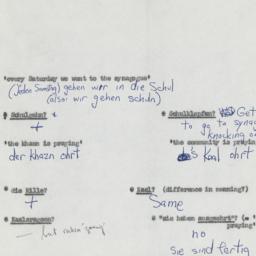 "every Saturday we went to the synagogue"
(Jeden Samstag) gehen wir in die Schul
(also wir gehen schuln)
# Schulgain? +
# Schulklopfen? Get
to go to synag
knocking o
"the khazn is praying"
der khazn ohrt
"the community is prayin
's Kaal ohrt
# die Kille?
+
# Kaal? (difference in meaning?)
Same
# Kaalsragon?
# "sie haben ausgeohrt"? (= "
praying"
no
Sie sind fertig